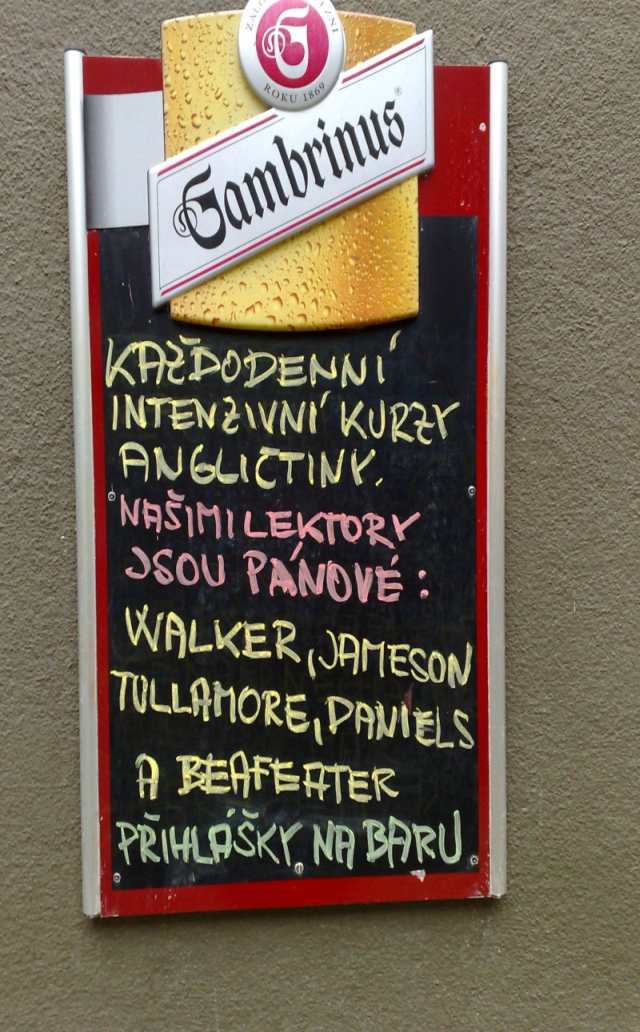 ROKU 1869
Gambrinus®
KAŽDODENNÍ
INTENZIVNÍ KURZY
ANGLIČTINY.
NAŠIMI LEKTORY
JSOU PÁNOVÉ:
WALKER, JAMESON
TULLAMORE, DANIELS
A BEAFEATER
PŘIHLÁŠKY NA BARU